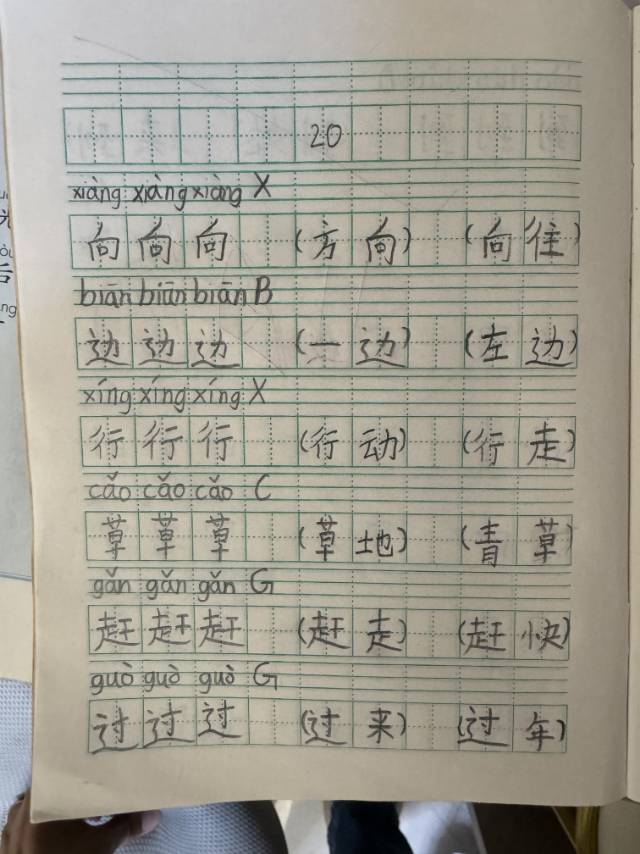 20
xiàng xiàng xiàng X
向 向 向 (方 向) (向 往)
biān biān biān B
边 边 边 (一 边) (左 边)
xíng xíng xíng X
行 行 行 (行 动) (行 走)
cǎo cǎo cǎo C
草 草 草 (草 地) (青 草)
gǎn gǎn gǎn G
赶 赶 赶 (赶 走) (赶 快)
guò guò guò G
过 过 过 (过 来) (过 年)